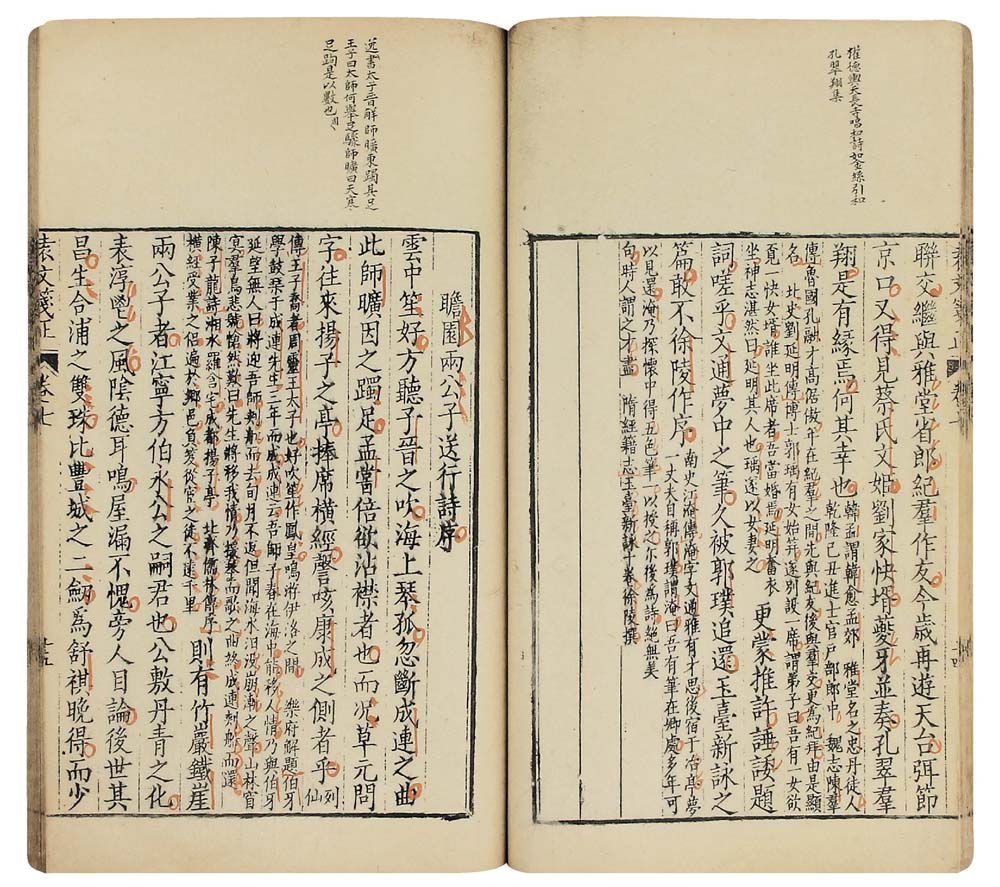 權德輿天長寺唱和詩如金絲引和
孔翠翔集
聯交繼與雅堂省郎紀羣作友今歲再遊天台弭節
京口又得見蔡氏文姬劉家快壻夔牙並奏孔翠羣
翔是有緣焉何其幸也
韓孟謂韓愈孟郊 雅堂名之忠丹徒人
乾隆己丑進士官戶部郎中 魏志陳羣
傳魯國孔融才高倨傲年在紀羣之間先與紀友後與羣交更爲紀拜由是顯
名 北史劉延明傳博士郭瑀有女始笄遂別設一席謂弟子曰吾有一女欲
覓一快女壻誰坐此席者吾當婚焉延明奮衣
坐神志湛然曰延明其人也瑀遂以女妻之
更蒙推許諈諉題
詞嗟乎文通夢中之筆久被郭璞追還玉臺新詠之
篇敢不徐陵作序
南史江淹傳淹字文通雅有才思後宿于冶亭夢
一丈夫自稱郭璞謂淹曰吾有筆在卿處多年可
以見還淹乃探懷中得五色筆一以授之尔後爲詩絕無美
句時人謂之才盡 隋經籍志玉臺新詠十卷徐陵撰
逸書太子晉解師曠束躅其足
王子曰太師何舉足驟師曠曰天寒
足跔是以數也
瞻園兩公子送行詩序
雲中笙好方聽子晉之吹海上琴孤忽斷成連之曲
此師曠因之躅足孟嘗倍欲沾襟者也而况草元問
字往來揚子之亭捧席橫經謦咳康成之側者乎
列
仙
傳王子喬者周靈王太子也好吹笙作鳳皇鳴游伊洛之間 樂府解題伯牙
學鼓琴于成連先生三年而成成連云吾師子春在海中能移人情乃與伯牙
延望無人曰將迎吾師刺船而去旬月不返但聞海水汨没崩澌之聲山林窅
冥羣鳥悲號愴然歎曰先生將移我情乃援琴而歌之曲終成連刺船而還
陳子龍詩湘水羅含宅成都揚子亭 北齊儒林傳序
橫經受業之侶遍於鄉邑負笈從宦之徒不遠千里
則有竹巖鐵崖
兩公子者江寧方伯永公之嗣君也公敷丹青之化
表淳鬯之風陰德耳鳴屋漏不愧旁人目論後世其
昌生合浦之雙珠比豐城之二劒爲舒祺晚得而少
袁文箋正 卷七 十五